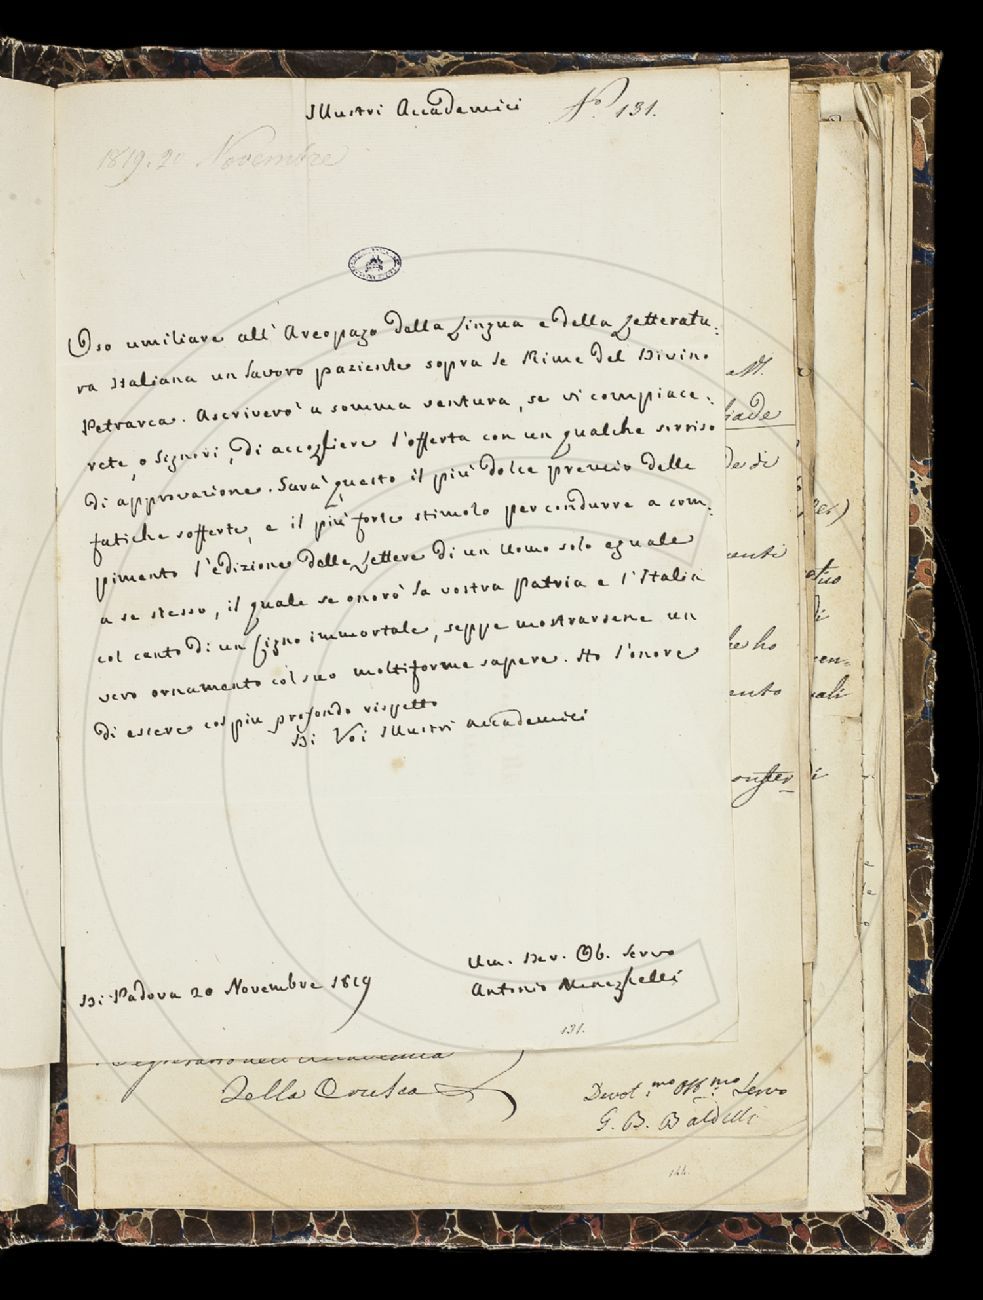 Illustri Accademici
N.o 131.
1819. 20 Novembre
Oso umiliare all' Areopago della Lingua e della Letteratu-
ra Italiana un lavoro paziente sopra le Rime del Divino
Petrarca. Ascriverò a somma ventura, se vi compiace-
rete, o Signori, di accogliere l'offerta con un qualche sorriso
di approvazione. Sarà questo il più dolce premio delle
fatiche sofferte, e il più forte stimolo per condurre a com-
pimento l'edizione delle Lettere di un Uomo solo eguale
a se stesso, il quale se onorò la vostra Patria e l'Italia
col canto di un Cigno immortale, seppe mostrarsene un
vero ornamento col suo moltiforme sapere. Ho l'onore
di essere col più profondo rispetto
Di Voi Illustri Accademici
Um. Dev. Ob. Servo
Antonio Meneghelli
Di Padova 20 Novembre 1819
131.
della Crusca
Devot.mo Obb.mo Servo
G. B. Baldelli
144.
iade
de di
enti
he ho
ento